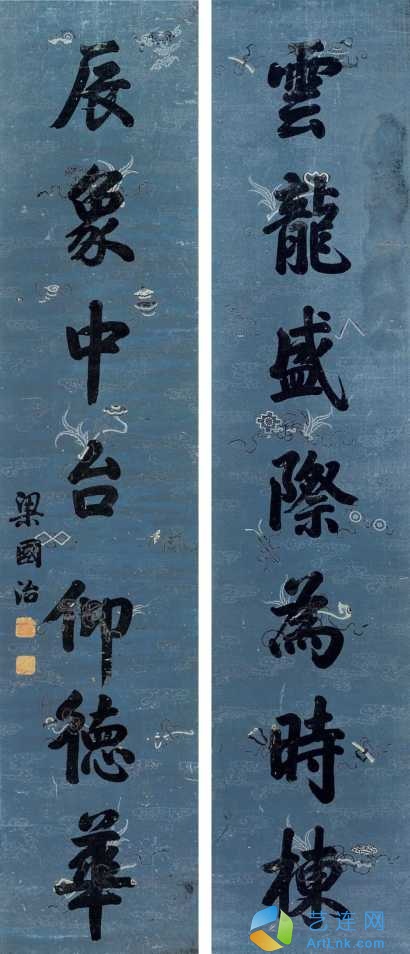 雲龍盛際為時棟
辰象中台仰德華
梁國治
艺连网
ArtLnk.com